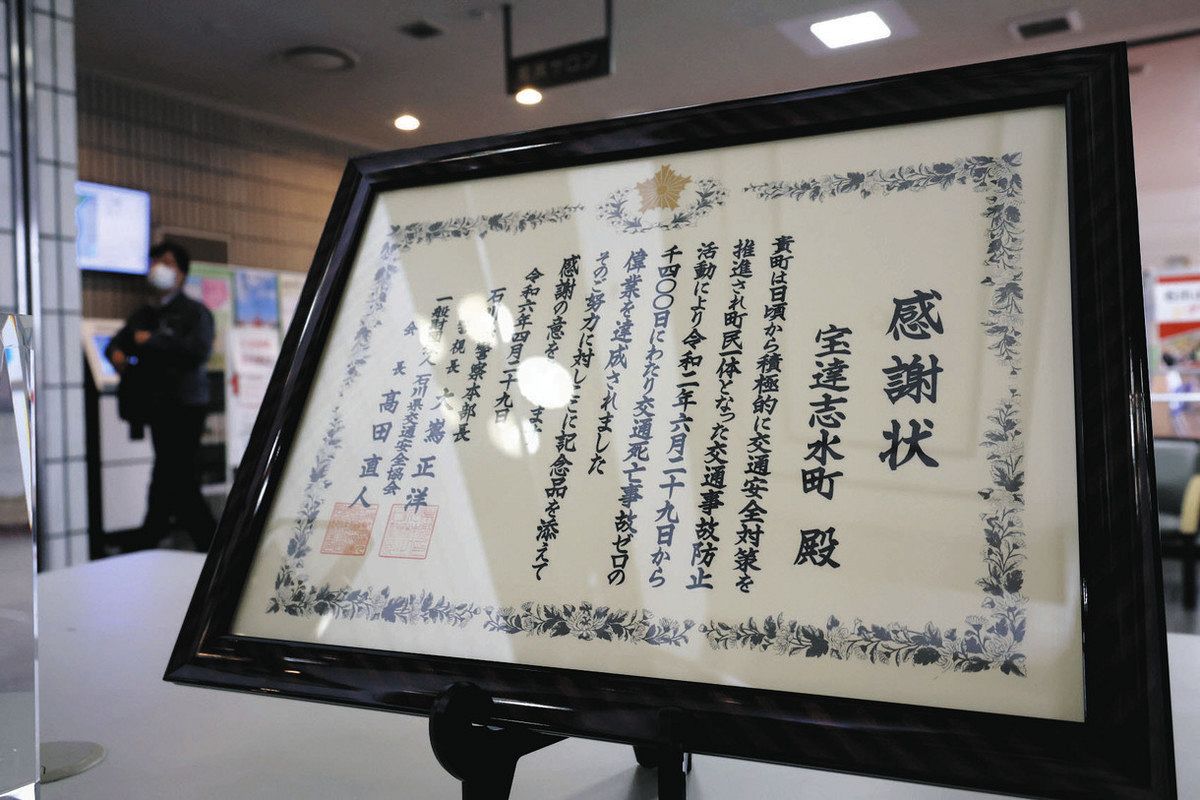 感謝状
宝達志水町 殿
貴町は日頃から積極的に交通安全対策を
推進され町民一体となった交通事故防止
活動により令和二年六月二十九日から
千四〇〇日にわたり交通死亡事故ゼロの
偉業を達成されました
そのご努力に対しここに記念品を添えて
感謝の意を
令和六年四月二十九日
石川 警察本部長
警視長 大 正洋
一般財 人 石川県交通安全協会
会長 高田直人